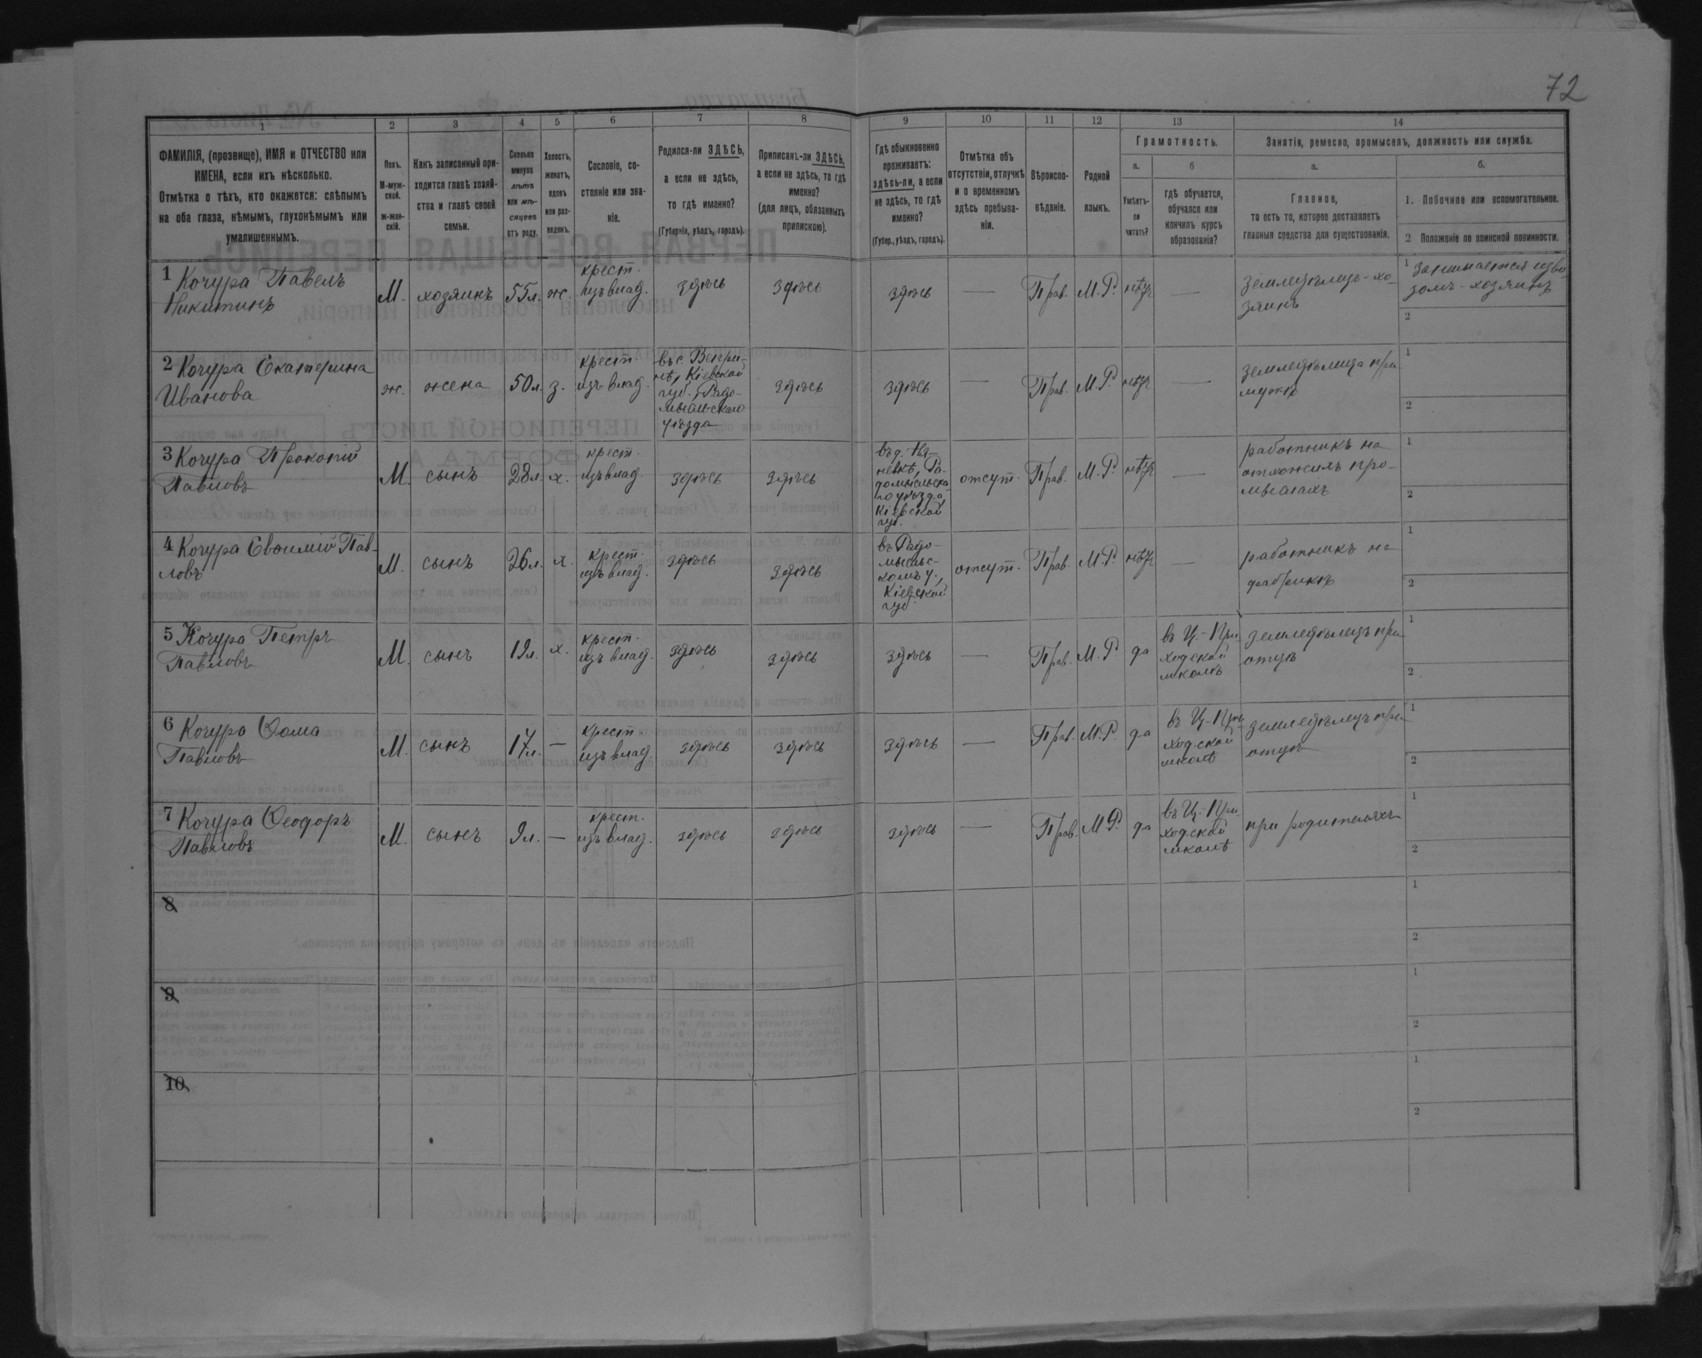 72
1
2
3
4
5
6
7
8
9
10
11
12
13
14
ФАМИЛІЯ, (прозвище), ИМЯ и ОТЧЕСТВО или
ИМЕНА, если ихъ нѣсколько.
Отмѣтка о тѣхъ, кто окажется: слѣпымъ
на оба глаза, нѣмымъ, глухонѣмымъ или
умалишеннымъ.
Полъ.
М-муж-
ской.
ж-жен-
скій.
Какъ записанный при-
ходится главѣ хозяй-
ства и главѣ своей
семьи.
Сколько
минуло
лѣтъ
или мѣ-
сяцевъ
отъ роду.
Холостъ,
женатъ,
вдовъ
или раз-
веденъ.
Сословіе, со-
стояніе или зва-
ніе.
Родился-ли ЗДѢСЬ,
а если не здѣсь,
то гдѣ именно?
(Губернія, уѣздъ, городъ).
Приписанъ-ли ЗДѢСЬ,
а если не здѣсь, то гдѣ
именно?
(для лицъ, обязанныхъ
припискою).
Гдѣ обыкновенно
проживаетъ:
здѣсь-ли, а если
не здѣсь, то гдѣ
именно?
(Губер., уѣздъ, городъ).
Отмѣтка объ
отсутствіи, отлучкѣ
и о временномъ
здѣсь пребыва-
ніи.
Вѣроиспо-
вѣданіе.
Родной
языкъ.
Грамотность.
а.
Умѣетъ-
ли
читать?
б
гдѣ обучается,
обучался или
кончилъ курсъ
образованія?
Занятіе, ремесло, промыселъ, должность или служба.
а.
Главное,
то есть то, которое доставляетъ
главныя средства для существованія.
б.
1. Побочное или вспомогательное.
2 Положеніе по воинской повинности.
1 Кочура Павелъ
Никитинъ
М.
хозяинъ
55л.
ж.
крест.
изъ влад.
здѣсь
здѣсь
здѣсь
—
Прав.
М.Р.
нѣтъ
—
земледѣлецъ-хо-
зяинъ
1 занимается изво
зомъ-хозяинъ
2
2 Кочура Екатерина
Иванова
ж.
жена
50л.
з.
крест.
изъ влад.
въ с. Вепри-
нѣ, Кіевской
губ., Радо-
мысльскаго
уѣзда
здѣсь
здѣсь
—
Прав.
М.Р.
нѣтъ
—
земледѣлица при
мужѣ
1
2
3 Кочура Прокопій
Павловъ
М.
сынъ
28л.
х.
крест.
изъ влад.
здѣсь
здѣсь
домысльска
го уѣзда,
Кіевской
губ.
отсут.
Прав.
М.Р.
нѣтъ
—
работникъ на
отхожихъ про-
мыслахъ
1
2
4 Кочура Евѳимій Пав-
ловъ
М.
сынъ
26л.
х.
крест.
изъ влад.
здѣсь
здѣсь
въ Радо-
мысльс-
комъ у.,
Кіевской
губ.
отсут.
Прав.
М.Р.
нѣтъ
—
работникъ на
фабрикѣ
1
2
5 Кочура Петръ
Павловъ
М.
сынъ
19л.
х.
крест.
изъ влад.
здѣсь
здѣсь
здѣсь
—
Прав.
М.Р.
да
въ Ц.-При
ходской
школѣ
земледѣлецъ при
отцѣ
1
2
6 Кочура Ѳома
Павловъ
М.
сынъ
17л.
—
крест.
изъ влад.
здѣсь
здѣсь
здѣсь
—
Прав.
М.Р.
да
въ Ц-При
ходской
школѣ
земледѣлецъ при
отцѣ
1
2
7 Кочура Ѳеодоръ
Павловъ
М.
сынъ
9л.
—
крест.
изъ влад.
здѣсь
здѣсь
здѣсь
—
Прав.
М.Р.
да
въ Ц.-При
ходской
школѣ
при родителяхъ
1
2
8
1
2
9
1
2
10
1
2